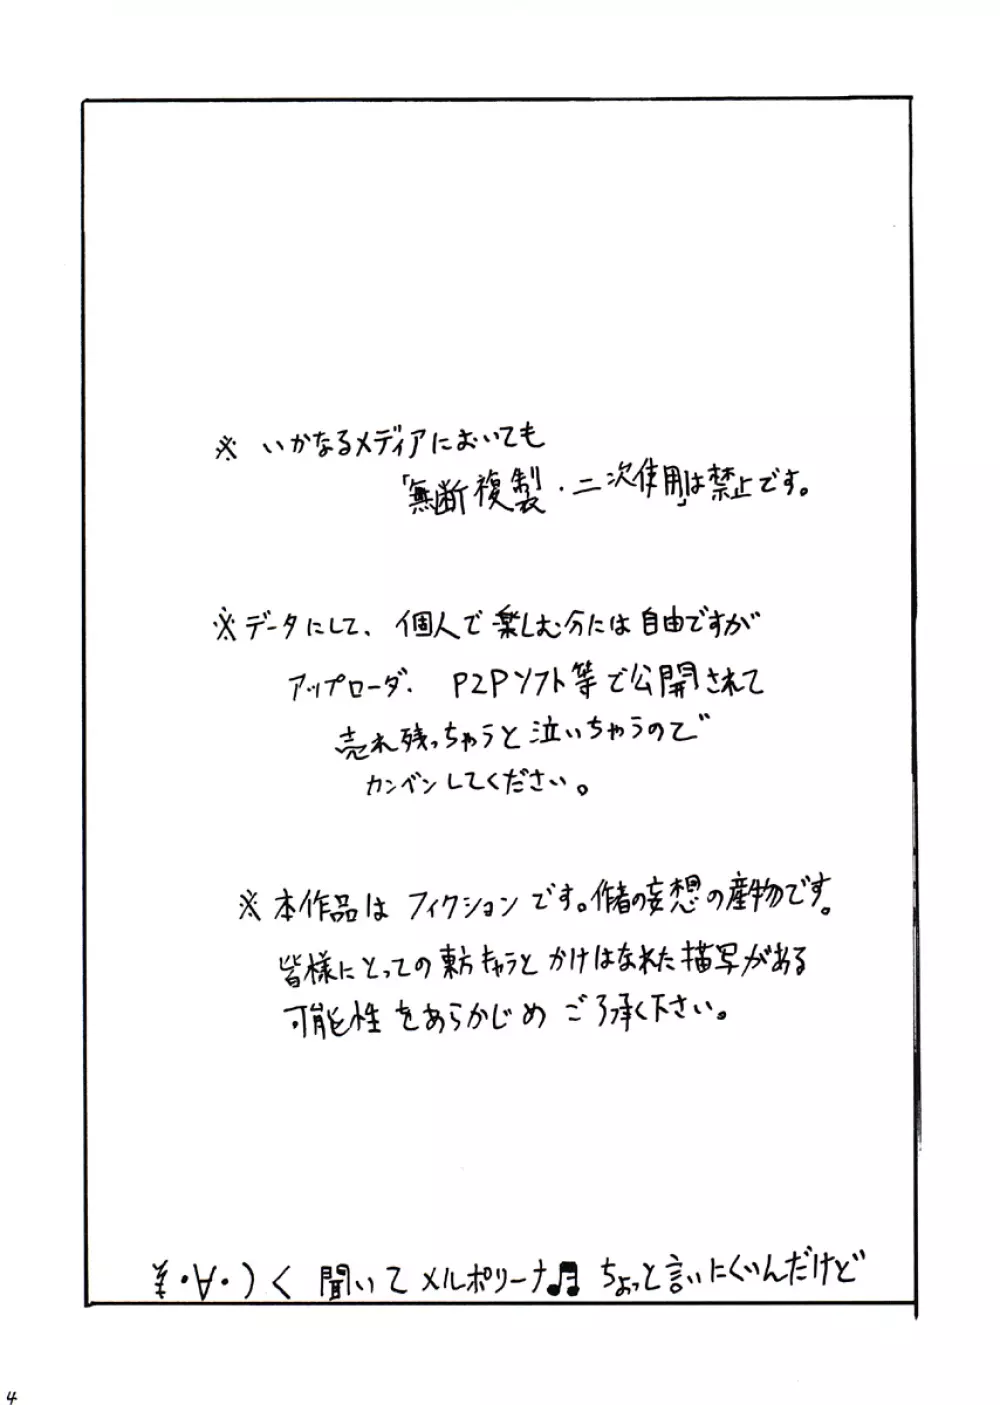 ※ いかなるメディアにおいても
「無断複製・二次使用」は禁止です。
※データにして、個人で楽しむ分には自由ですが
アップローダ、P2Pソフト等で公開されて
売れ残っちゃうと泣いちゃうので
カンベンしてください。
※本作品はフィクションです。作者の妄想の産物です。
皆様にとっての東方キャラとかけはなれた描写がある
可能性をあらかじめご了承く下さい。
・∀・)く 聞いてメルポリーナ♬ ちょっと言いにくいんだけど
4